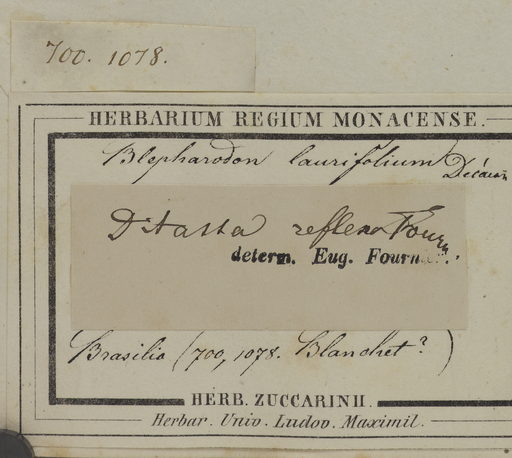 700. 1078.
HERBARIUM REGIUM MONACENSE.
Blepharodon laurifolium Decaisn
Ditassa reflexa Fourn.
determ. Eug. Fournier.
Brasilia (700, 1078. Blanchet?)
HERB. ZUCCARINII.
Herbar. Univ. Ludov. Maximil.